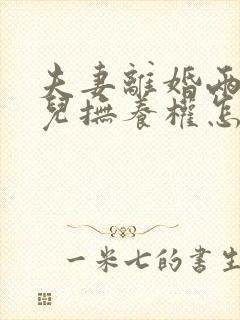 夫妻離婚兩
兒撫養權怎
一米七的書生